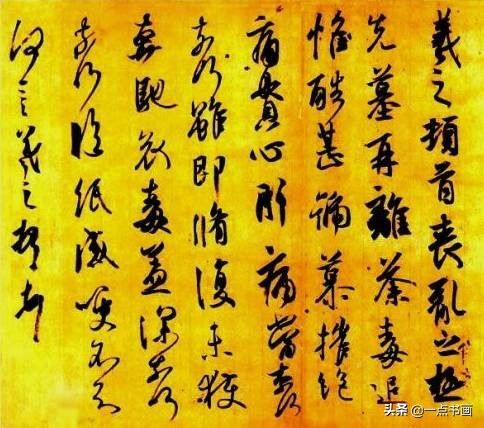 羲之頓首喪亂之極
先墓再離荼毒追
惟酷甚號慕摧絕
痛貫心肝痛當奈何
奈何雖即脩復未獲
奔馳哀毒益深奈何
奈何臨紙感哽不知
何言羲之頓首頓首
头条 @一点书画